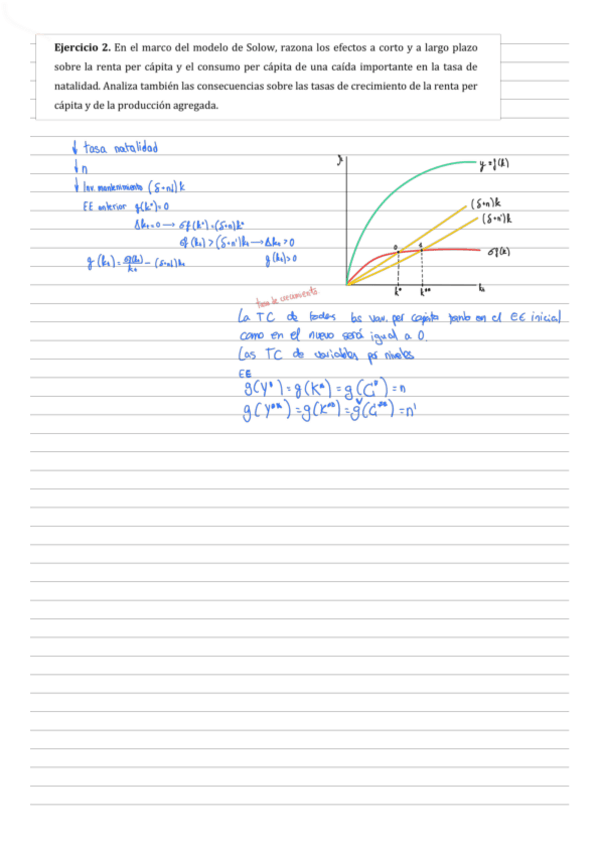 Ejercicio 2. En el marco del modelo de Solow, razona los efectos a corto y a largo plazo
sobre la renta per cápita y el consumo per cápita de una caída importante en la tasa de
natalidad. Analiza también las consecuencias sobre las tasas de crecimiento de la renta per
cápita y de la producción agregada.
↓ tasa natalidad
↓ n
↓ Inv. mantenimiento (δ+n)k
EE anterior g(k*)=0
Δk=0 → σf(k*)=(δ+n)k*
σf(k₀)>(δ+n')k₀ → Δk₀>0
g(k₀)>0
y
y=f(k)
(δ+n)k
(δ+n')k
σf(k)
k*
k**
tasa de crecimiento
La TC de todas las var. per capita tanto en el EE inicial
como en el nuevo será igual a 0.
Las TC de variables por niveles
EE
g(Y*)=g(K*)=g(C*)=n
g(Y**)=g(K**)=g(C**)=n'